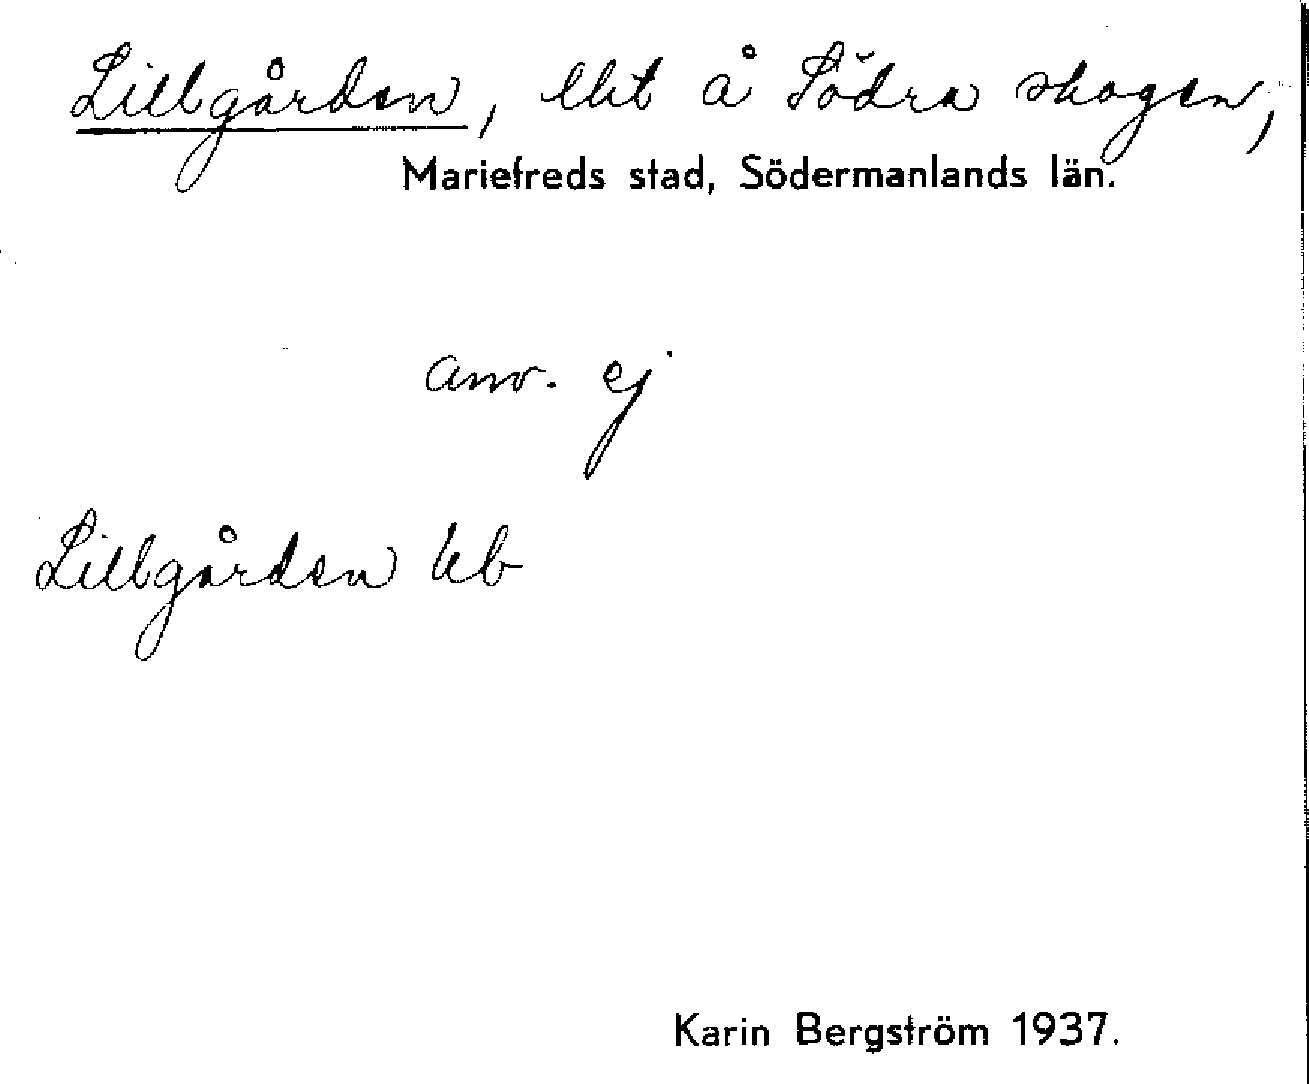 Lillgården, lht å Södra skogen,
Mariefreds stad, Södermanlands län.
anv. ej
Lillgården kb
Karin Bergström 1937.